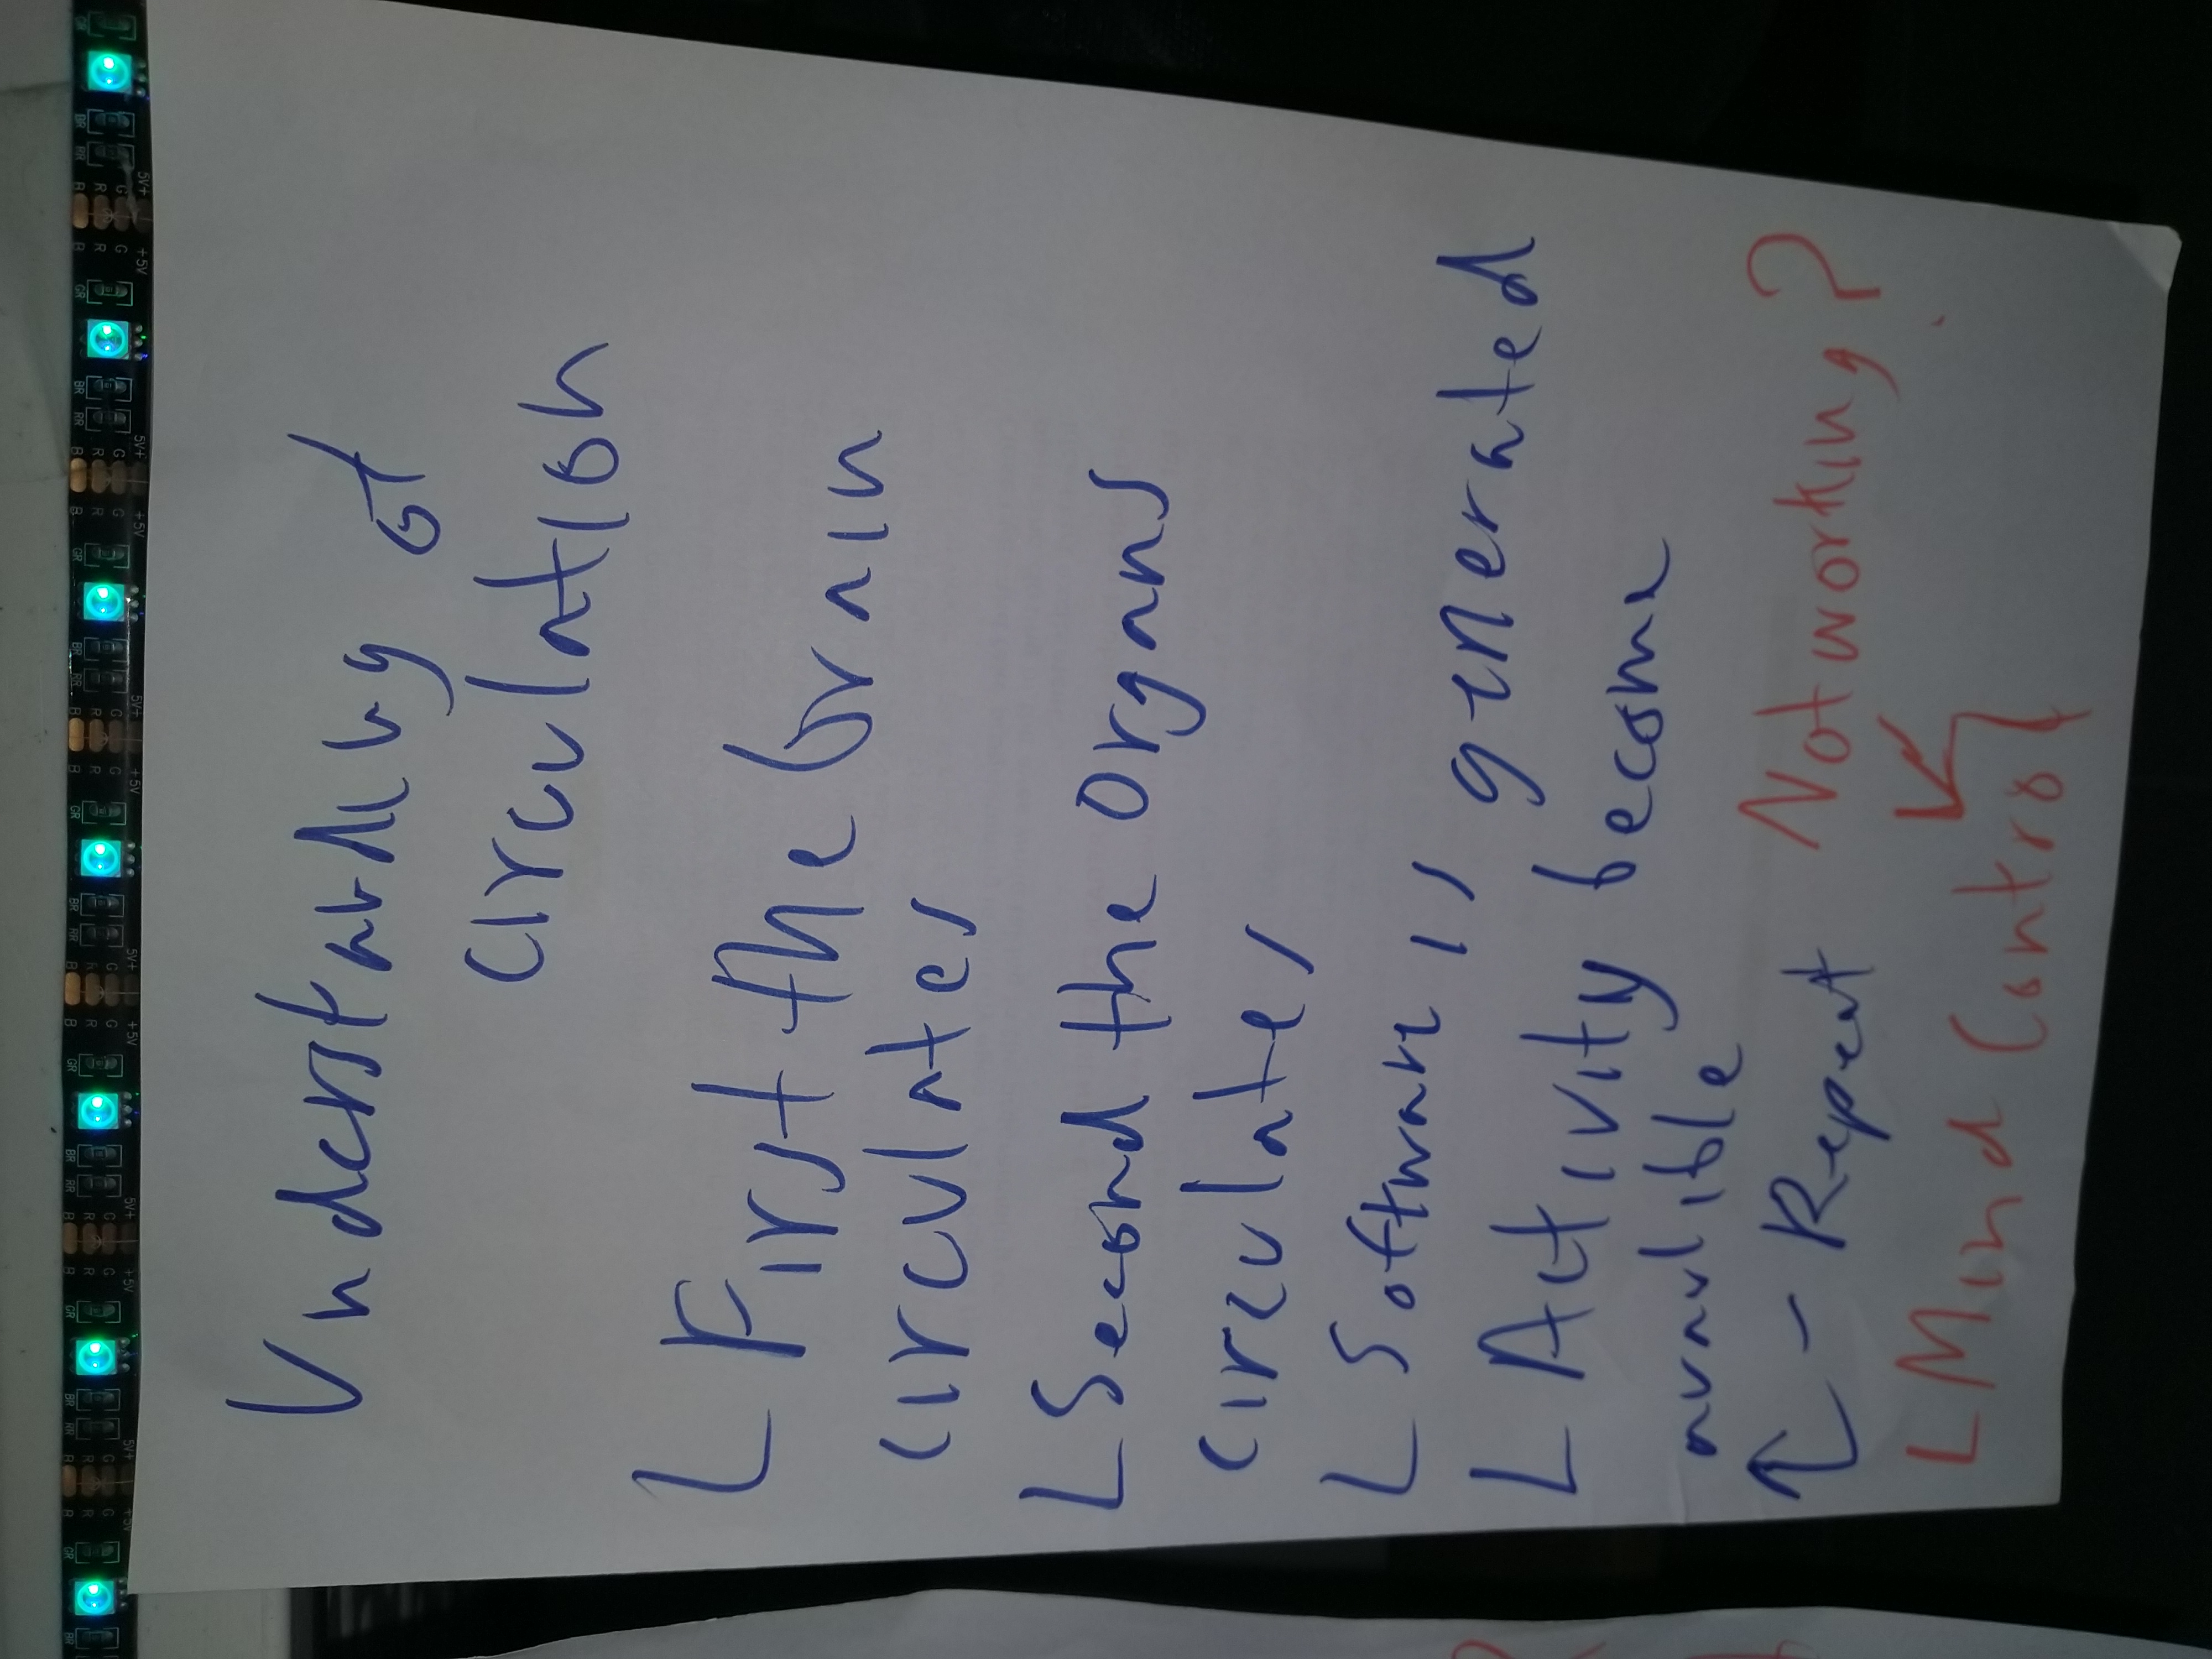 Understanding of
circulation
L First the brain
circulates
L Second the organs
circulates
L Software is generated
L Activity become
available
- - Repeat Not working?
L Mind control